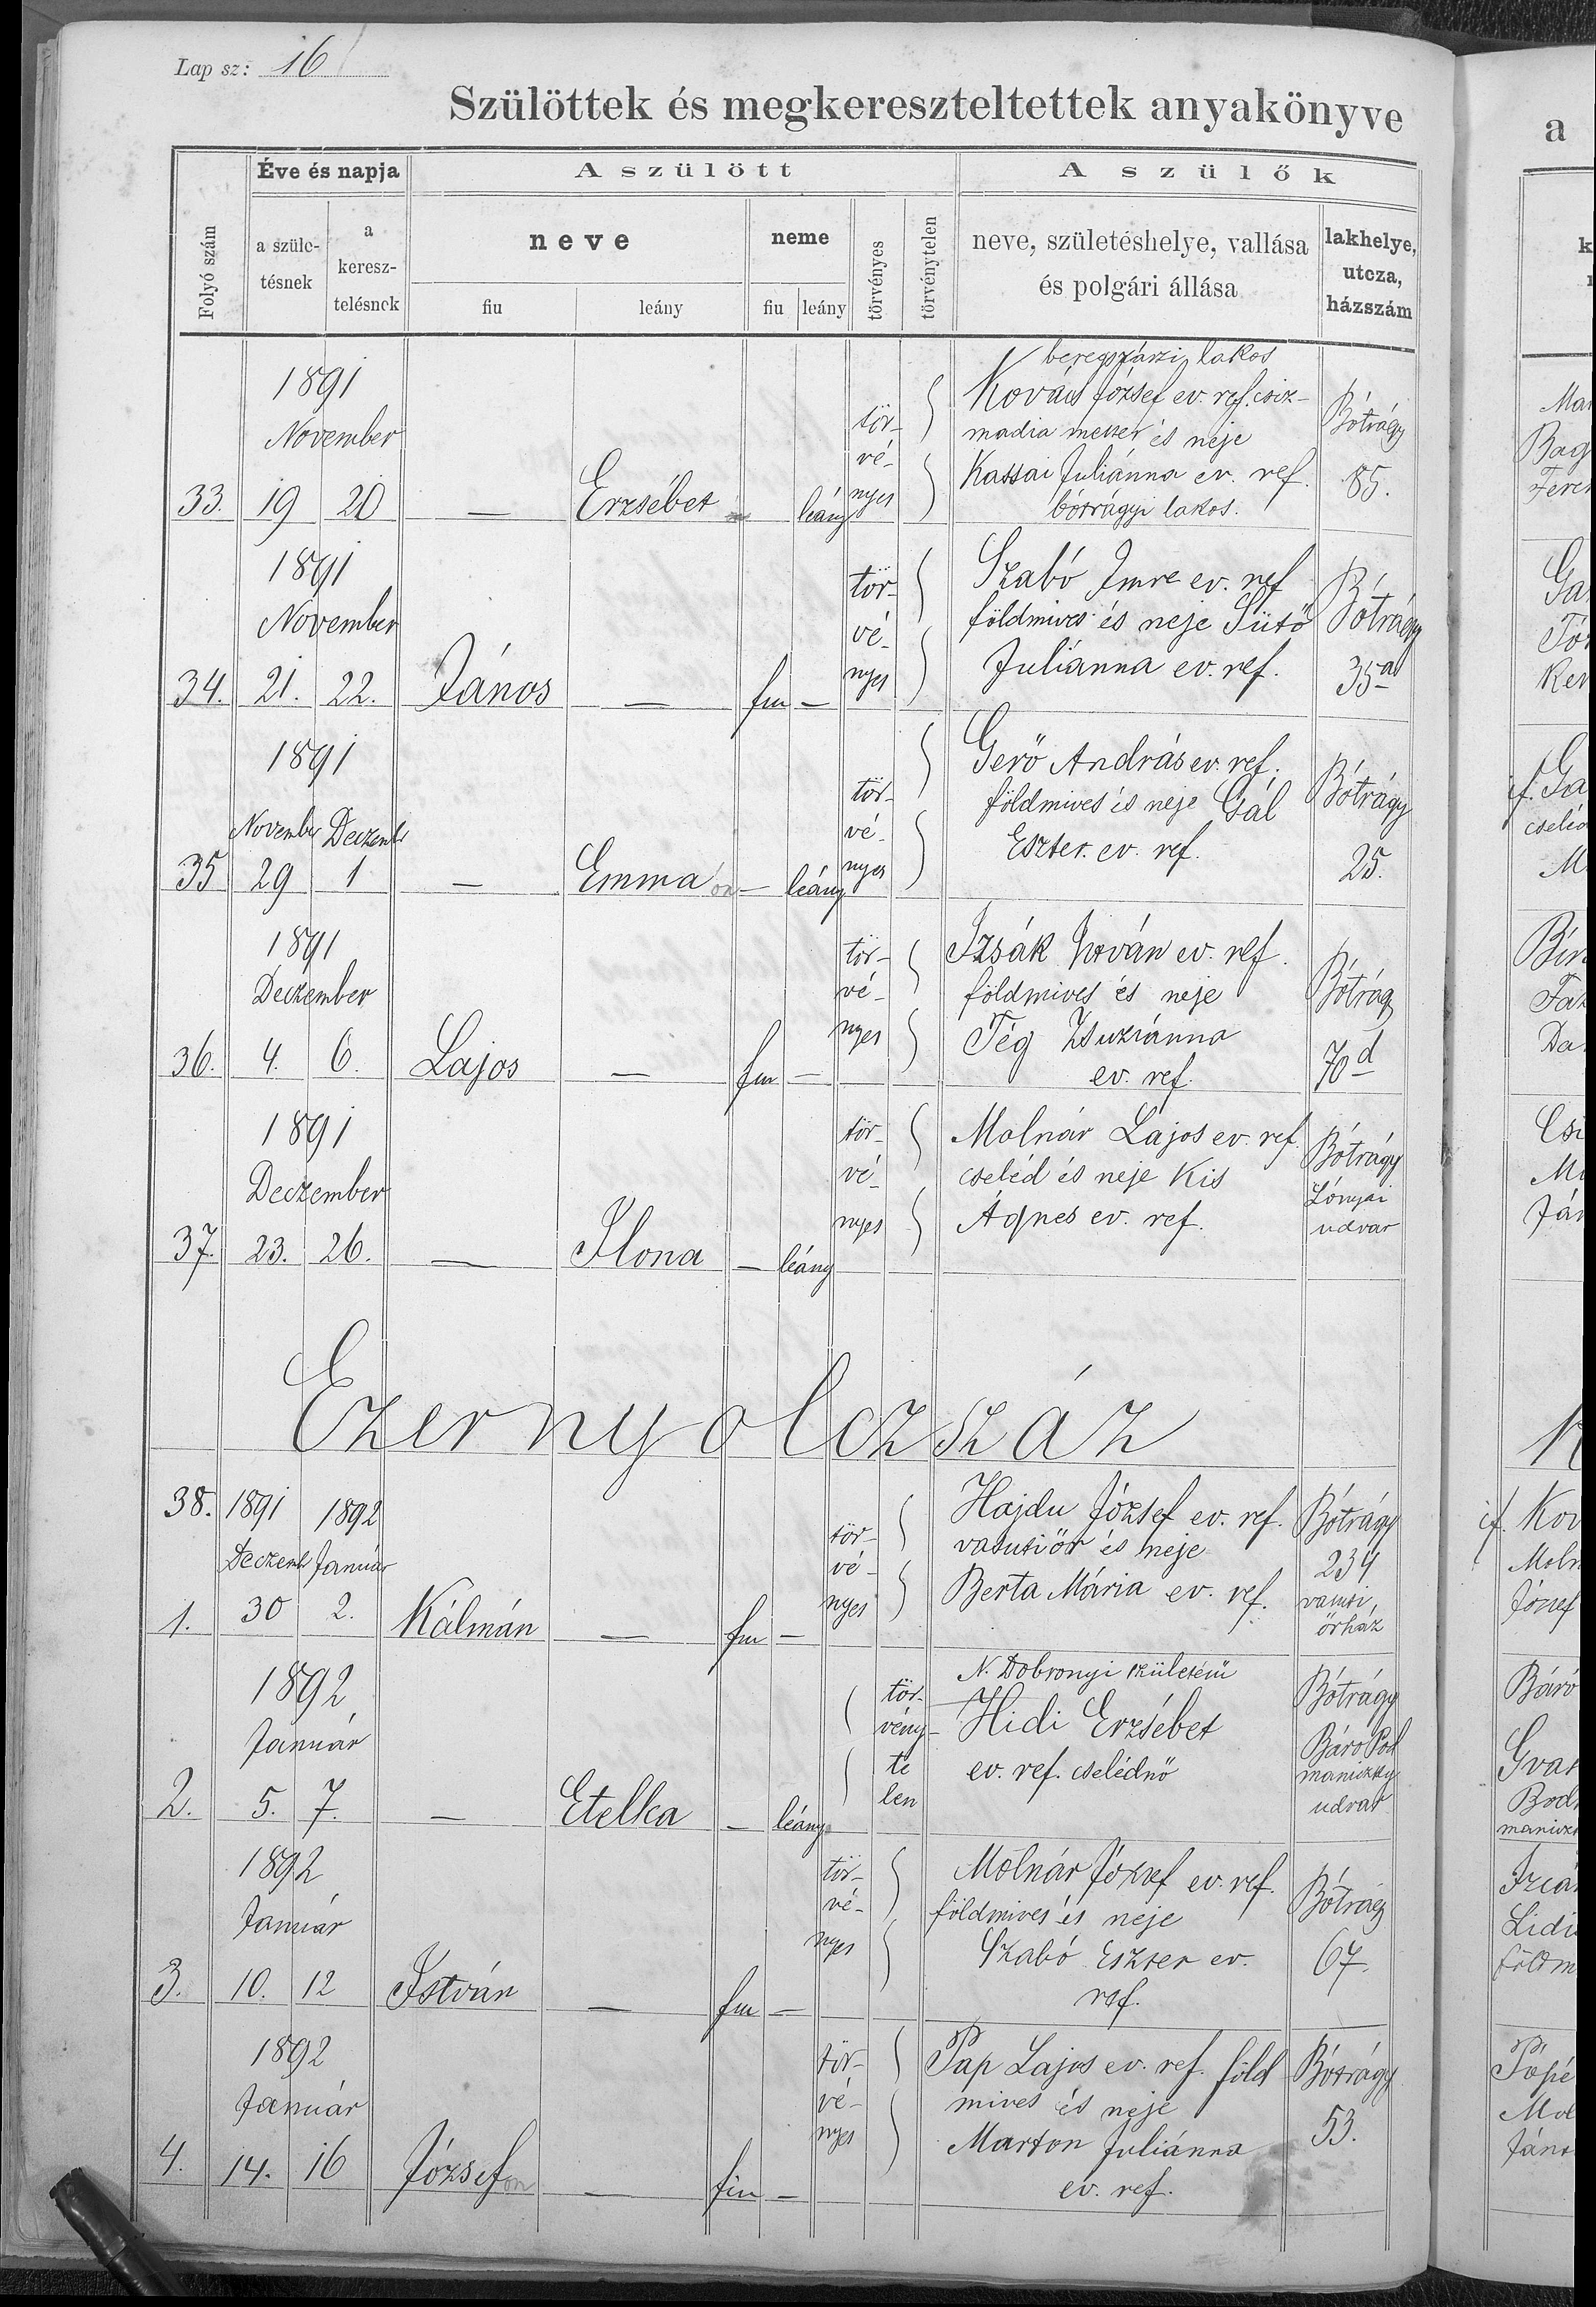 Lap sz: 16
Szülöttek és megkereszteltettek anyakönyve
a
Folyó szám
Éve és napja
A szülött
A szülők
a szüle-
tésnek
a
keresz-
telésnek
neve
fiu
leány
neme
fiu leány
törvényes
törvénytelen
neve, születéshelye, vallása
és polgári állása
lakhelye,
utcza,
házszám
33. 1891
November
19 20 — Erzsébet leány
tör-
vé-
nyes
beregszászi lakos
Kovács József ev. ref. csiz-
madia mester és neje
Kassai Juliánna ev. ref.
bótrágyi lakos.
Bótrágy
85.
34. 1891
November
21. 22. János — fiu —
tör-
vé-
nyes
Szabó Imre ev. ref
földmives és neje Sütő
Juliánna ev. ref.
Bótrágy
35a
35 1891
Novemb Deczemb
29 1 — Emma — leány
tör-
vé-
nyes
Gerő András ev. ref.
földmives és neje Gál
Eszter. ev. ref.
Bótrágy
25.
36. 1891
Deczember
4. 6. Lajos — fiu —
tör-
vé-
nyes
Izsák István ev. ref.
földmives és neje
Tég Zsuzsánna
ev. ref.
Bótrágy
70d
37. 1891
Deczember
23. 26. — Ilona — leány
tör-
vé-
nyes
Molnár Lajos ev. ref.
cseléd és neje Kis
Ágnes ev. ref.
Bótrágy
Lónyai
udvar
Ezernyolczszáz
38. 1891 1892
Deczemb Január
1. 30 2. Kálmán — fiu —
tör-
vé-
nyes
Hajdu József ev. ref.
vasutiőr és neje
Berta Mária ev. ref.
Bótrágy
234
vasuti,
őrház
2. 1892
Január
5. 7. — Etelka — leány
tör-
vény-
te
len
N. Dobronyi születésü
Hidi Erzsébet
ev. ref. cselédnő
Bótrágy
Báro Pod
maniczky
udvar
3. 1892
Január
10. 12 István — fiu —
tör-
vé-
nyes
Molnár József ev. ref.
földmives és neje
Szabó Eszter ev.
ref.
Bótrágy
67.
4. 1892
Január
14. 16 József — fiu —
tör-
vé-
nyes
Pap Lajos ev. ref. föld
mives és neje
Marton Juliánna
ev. ref.
Bótrágy
53.